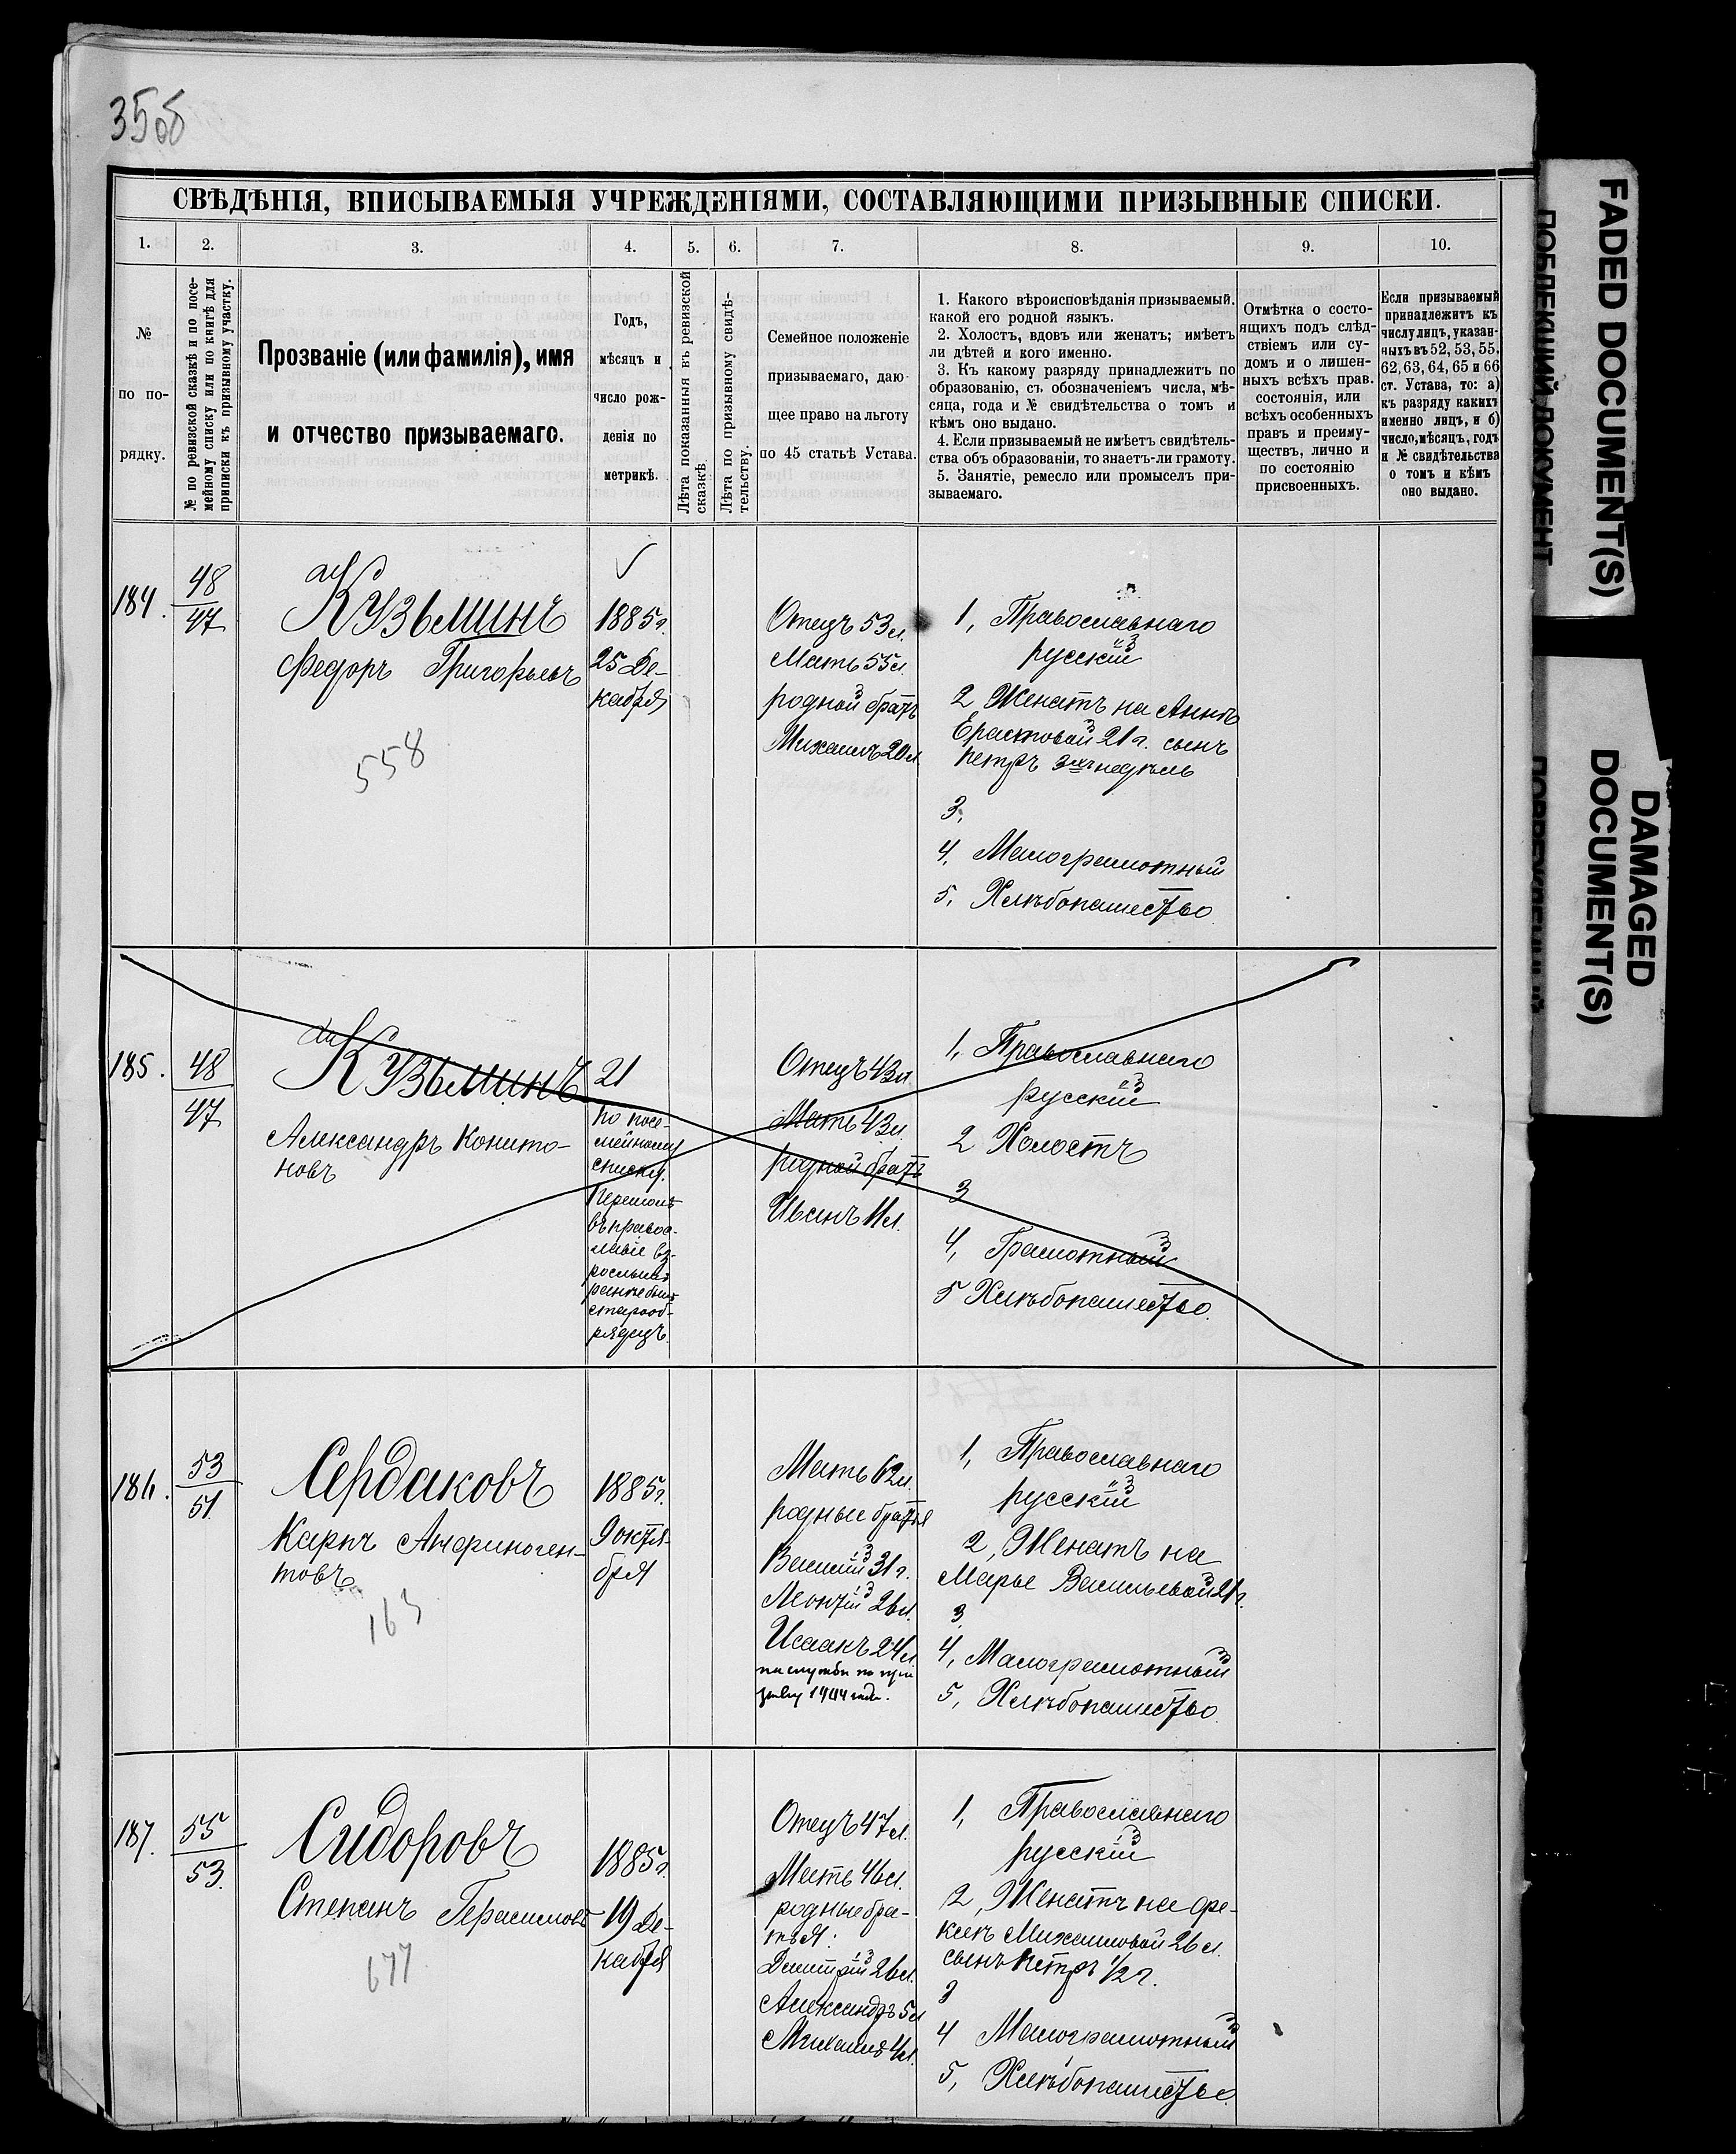 35об
СВѢДѢНІЯ, ВПИСЫВАЕМЫЯ УЧРЕЖДЕНІЯМИ, СОСТАВЛЯЮЩИМИ ПРИЗЫВНЫЕ СПИСКИ.
1. 2. 3. 4. 5. 6. 7. 8. 9. 10.
№
по по-
рядку.
№ по ревизской сказкѣ и по посе-
мейному списку или по книгѣ для
приписки къ призывному участку.
Прозваніе (или фамилія), имя
и отчество призываемаго.
Годъ,
мѣсяцъ и
число рож-
денія по
метрикѣ.
Лѣта показанныя въ ревизской
сказкѣ
Лѣта по призывному свидѣ-
тельству.
Семейное положеніе
призываемаго, даю-
щее право на льготу
по 45 статьѣ Устава.
1. Какого вѣроисповѣданія призываемый.
какой его родной языкъ.
2. Холостъ, вдовъ или женатъ; имѣетъ
ли дѣтей и кого именно.
3. Къ какому разряду принадлежитъ по
образованію, съ обозначеніемъ числа, мѣ-
сяца, года и № свидѣтельства о томъ и
кѣмъ оно выдано.
4. Если призываемый не имѣетъ свидѣтель-
ства объ образованіи, то знаетъ-ли грамоту.
5. Занятіе, ремесло или промыселъ при-
зываемаго.
Отмѣтка о состо-
ящихъ подъ слѣд-
ствіемъ или су-
домъ и о лишен-
ныхъ всѣхъ прав.
состоянія, или
всѣхъ особенныхъ
правъ и преиму-
ществъ, лично и
по состоянію
присвоенныхъ.
Если призываемый
принадлежитъ къ
числу лицъ, указан-
ныхъ въ 52, 53, 55,
62, 63, 64, 65 и 66
ст. Устава, то: а)
къ разряду какихъ
именно лицъ, и б)
число, мѣсяцъ, годъ
и № свидѣтельства
о томъ и кѣмъ
оно выдано.
184.
48
47
Кузьминъ
Федоръ Григорьевъ
558
1885г.
25 Де-
кабря
Отецъ 53 л.
Мать 55 л
родной братъ
Михаилъ 20 л
1, Православнаго
русскій
2 Женатъ на Аннѣ
Ерастовой 21 г. сынъ
Петръ 3хъ недѣль
3,
4, Малограмотный
5, Хлѣбопашество.
185.
48
47
Кузьминъ
Александръ Конито-
новъ
21
по посе-
мейному
списку.
Перешолъ
въ правос-
лавіе вз-
рослымъ
ранѣе былъ
старооб-
рядецъ.
Отецъ 43 л.
Мать 43 л.
родной братъ
Иванъ 11 л.
1, Православнаго
русскій
2 Холостъ
3
4, Грамотный
5 Хлѣбопашество.
186.
53
51.
Сердаковъ
Карпъ Анфиноген-
товъ
163
1885г.
9 октя-
бря
Мать 62 л.
родные братья
Василій 31 г.
Леонтій 26 л.
Исаакъ 24 л.
на службѣ по при
зыву 1904 года.
1, Православнаго
русскій
2, Женатъ на
Марье Васильевой 21 г.
3
4, Малограмотный
5, Хлѣбопашество.
187.
55
53.
Сидоровъ
Степанъ Герасимовъ
677
1885г.
19 Де-
кабря
Отецъ 47 л.
Мать 46 л.
родные бра-
тья:
Дмитрій 26 л.
Александръ 5 л
Михаилъ 4 л.
1, Православнаго
русскій
2, Женатъ на Фе-
клѣ Михаиловой 26 л.
сынъ Петръ 1/2 г.
3
4 Малограмотный
5, Хлѣбопашество.
FADED DOCUMENT(S)
ПОБЛЕКШИЙ ДОКУМЕНТ
DAMAGED
DOCUMENT(S)